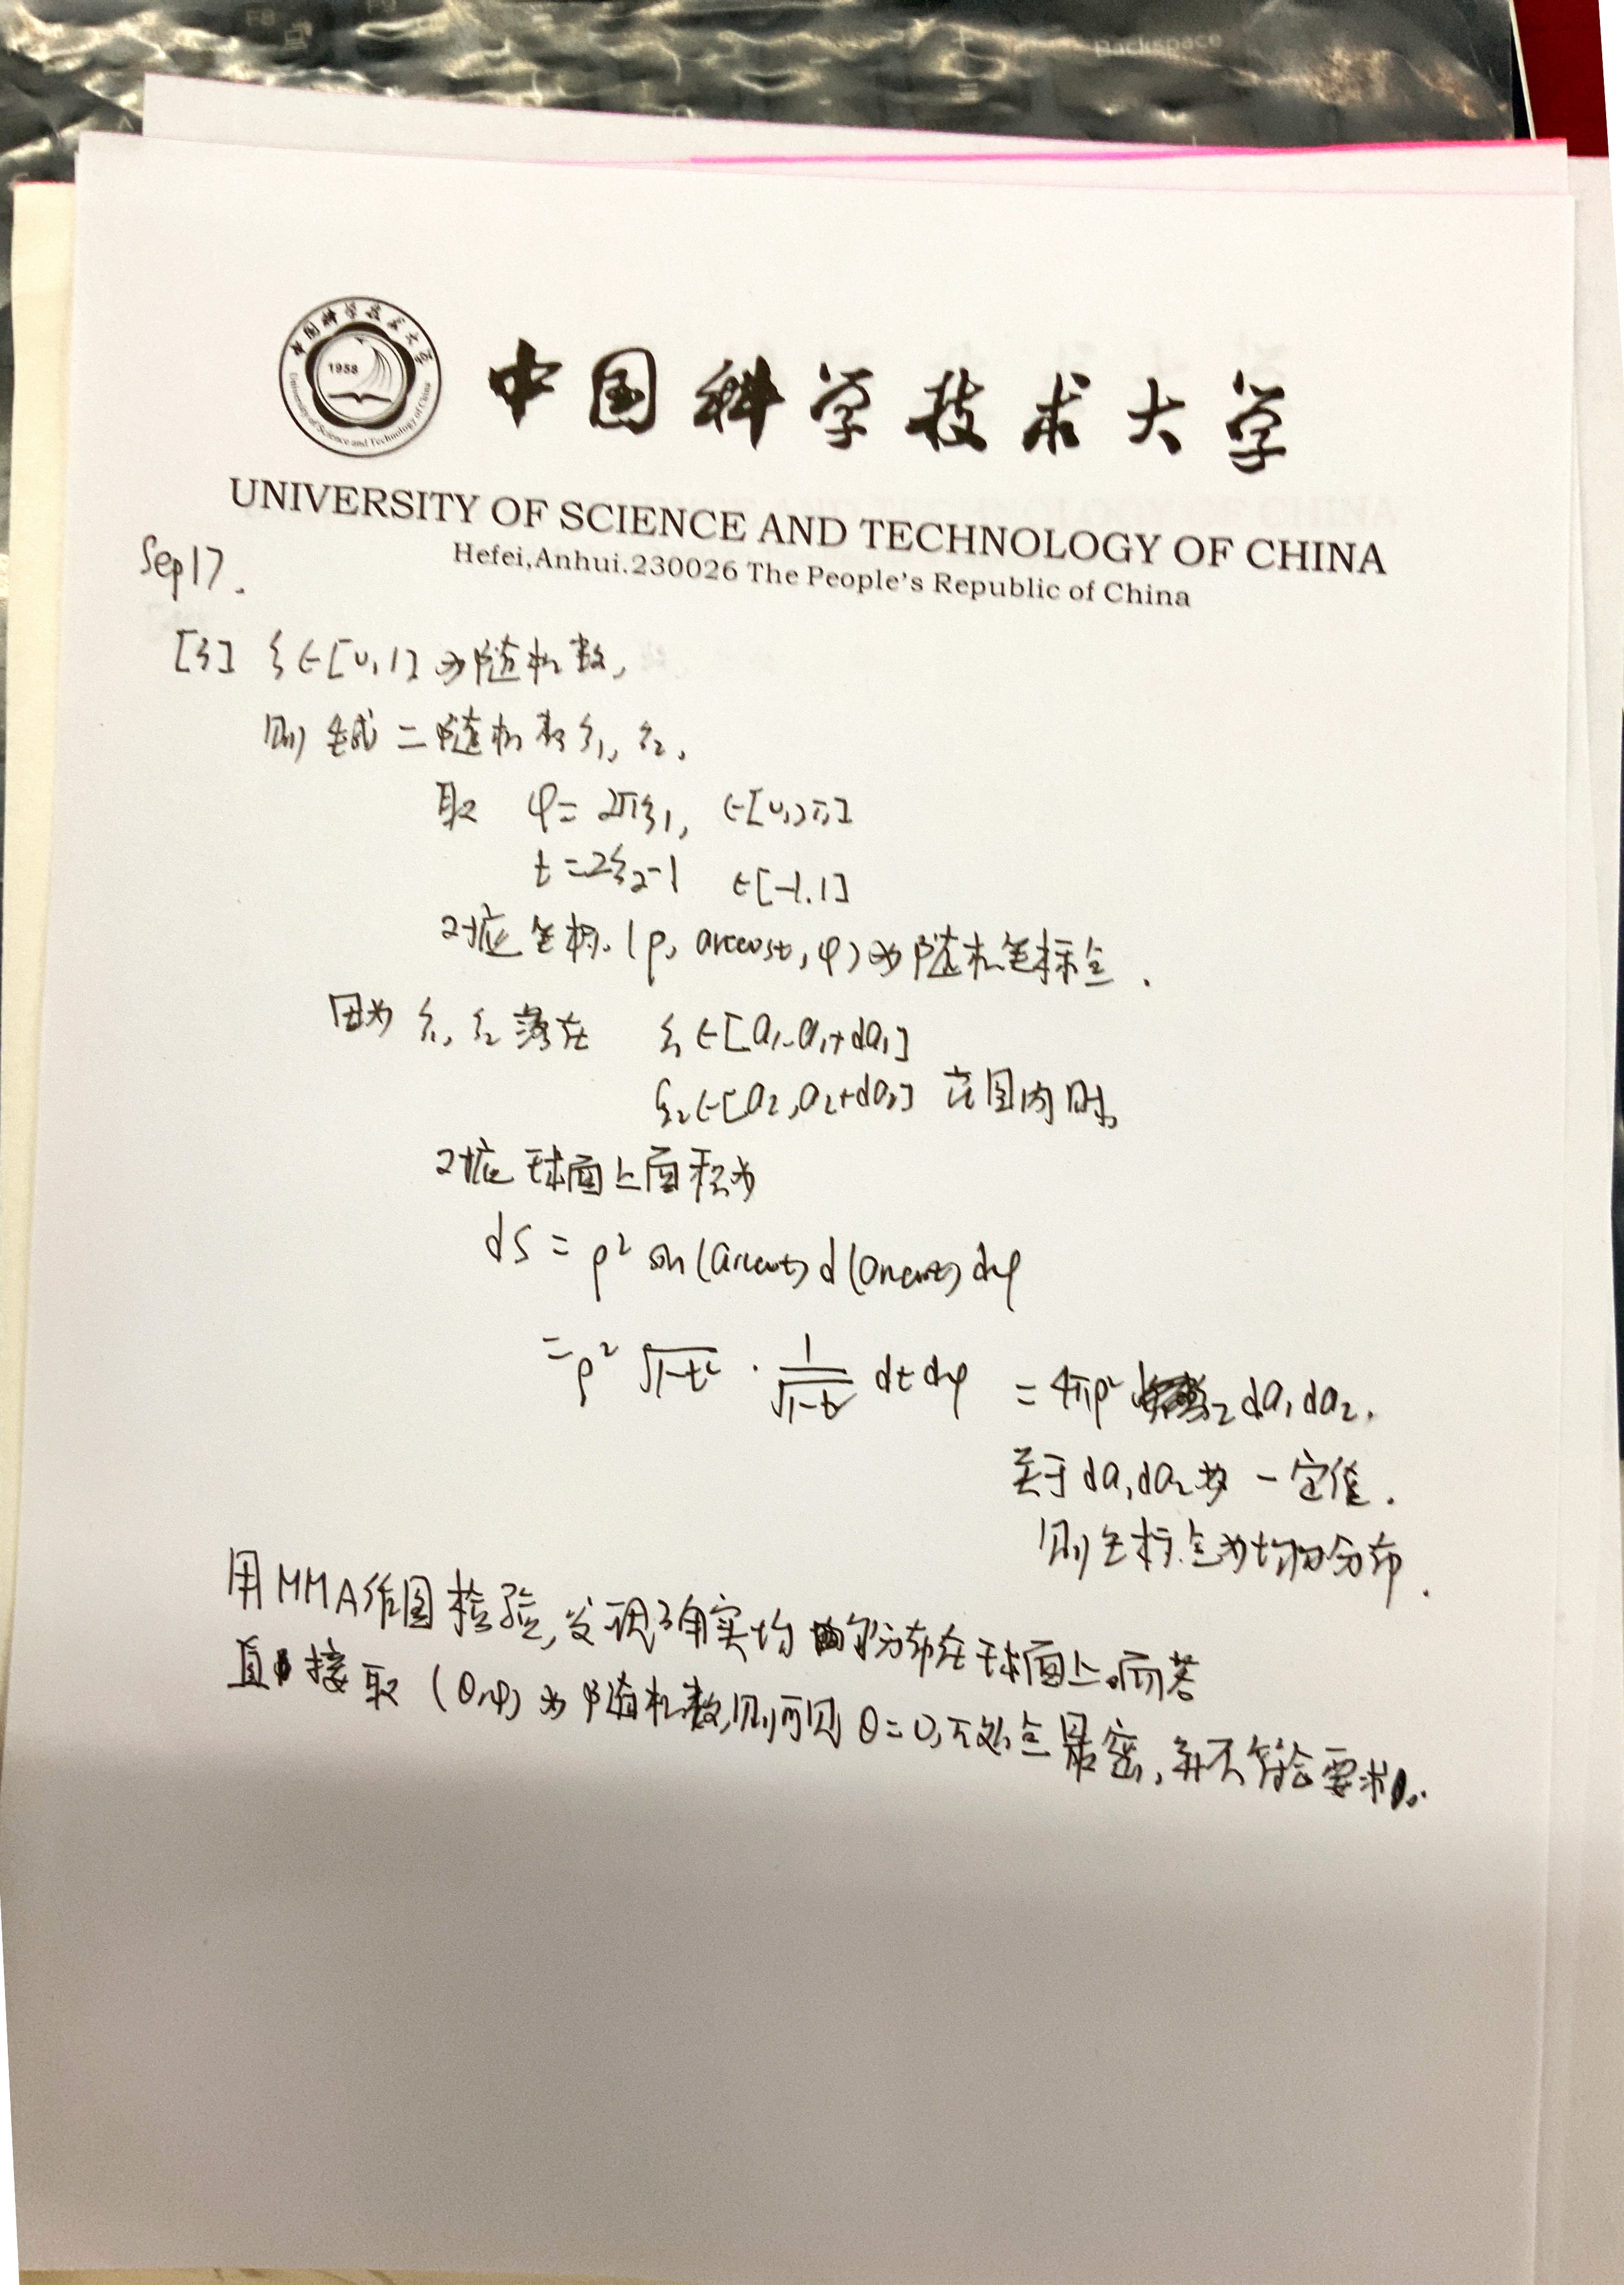 Backspace
中国科学技术大学
1958
University of Science and Technology of China
中国科学技术大学
UNIVERSITY OF SCIENCE AND TECHNOLOGY OF CHINA
Hefei,Anhui.230026 The People's Republic of China
Sep17.
[3] ξ∈[0,1]为随机数,
则生成二随机数ξ₁, ξ₂.
取 φ=2πξ₁, ∈[0,2π]
t=2ξ₂-1 ∈[-1.1]
对应坐标.(ρ, arccost, φ)为随机坐标点.
因为 ξ₁, ξ₂落在 ξ₁∈[a₁,a₁+da₁]
ξ₂∈[a₂,a₂+da₂] 范围内时,
对应球面上面积为
dS = ρ² sin(arccost) d(arccost) dφ
=ρ² √1-t² · 1/√1-t² dt dφ = 4πρ² da₁da₂.
关于da₁da₂为一定值.
则坐标点为均匀分布.
用MMA作图检验,发现确实均匀分布在球面上.而若
直接取(θ,φ)为随机数,则可见θ=0,π处点最密,并不符合要求.